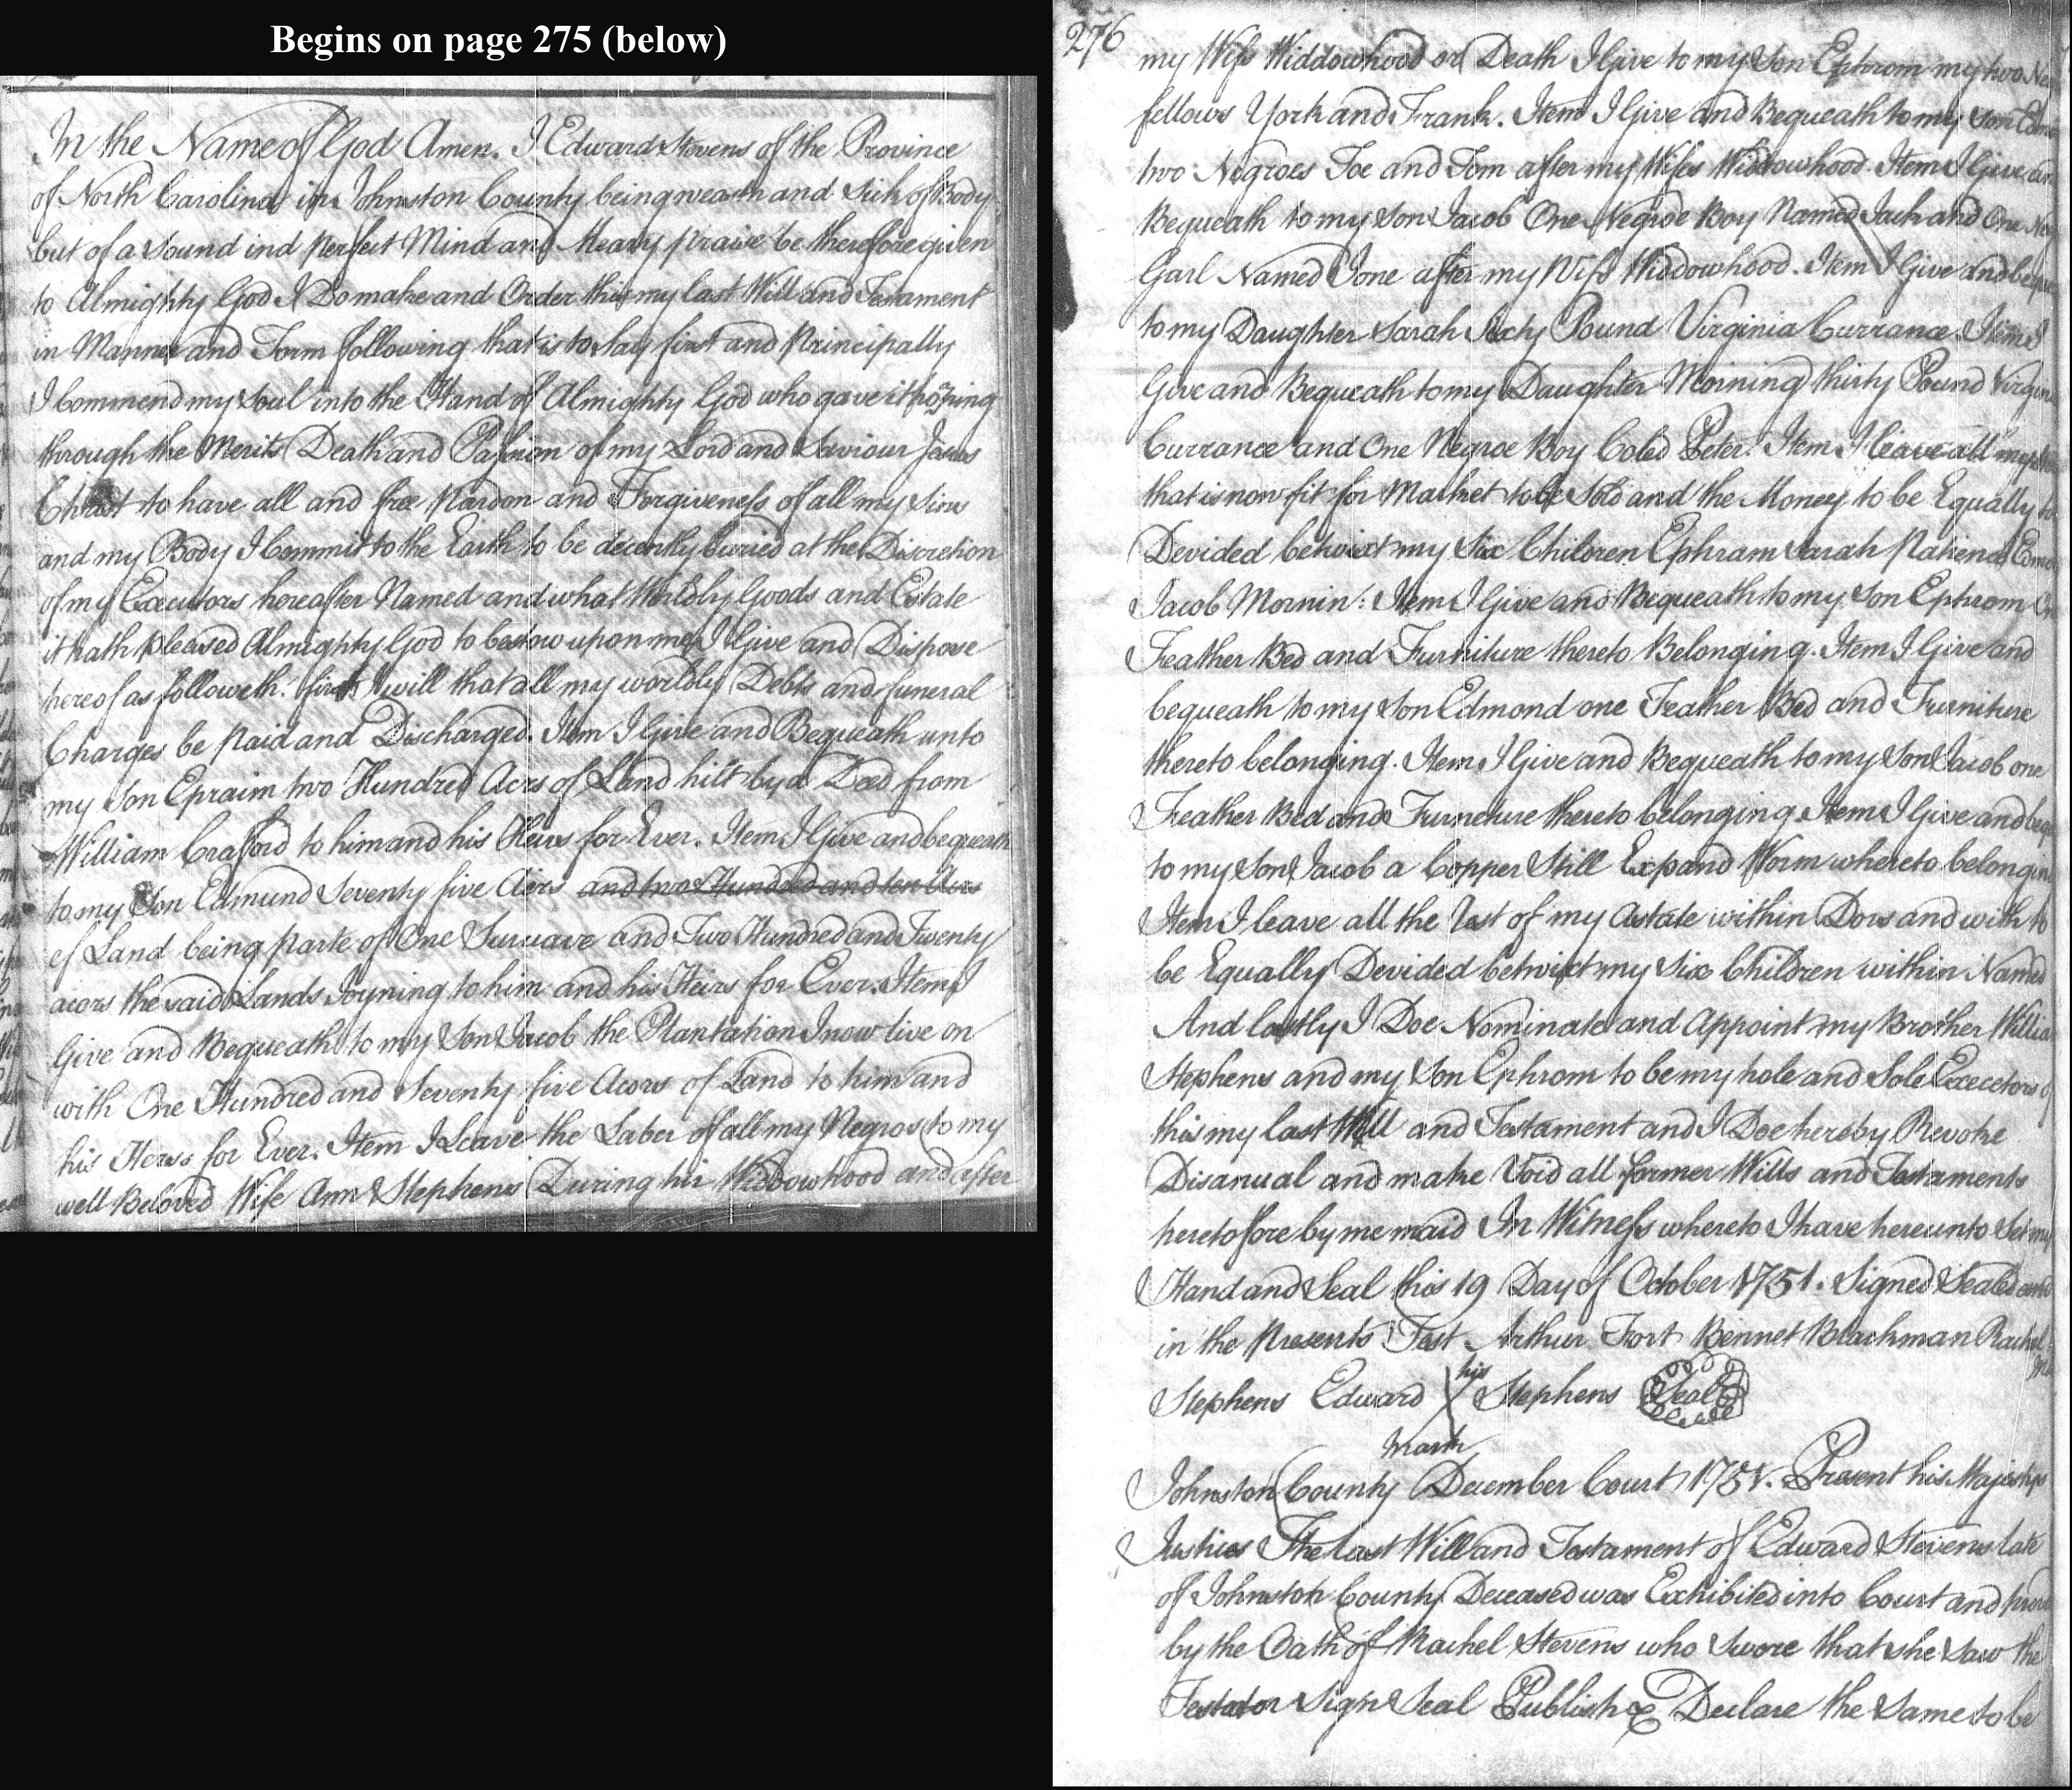 Begins on page 275 (below)
In the Name of God Amen. I Edward Stevens of the Province
of North Carolina in Johnston County being weak and Sick of Body
but of a Sound ind Perfect Mind and Meary praise be therefore given
to Almighty God I Do make and Order this my last Will and Testament
in Manner and Form following that is to Say first and Principally
I Commend my Soul into the Hand of Almighty God who gave it hoping
through the Merits Death and Passion of my Lord and Saviour Jesus
Christ to have all and free Pardon and Forgiveness of all my Sins
and my Body I Commit to the Earth to be decently buried at the Discretion
of my Executors hereafter Named and what Worldly Goods and Estate
it hath pleased Almighty God to bestow upon me I Give and Dispose
hereof as followeth. first I will that all my worldly Debts and funeral
Charges be Paid and Discharged. Item I Give and Bequeath unto
my Son Epraim two Hundred Acrs of Land hilt by a Deed from
William Craford to him and his Heirs for Ever. Item I Give and bequeath
to my Son Edmund Seventy five Acrs and two Hundred and ten Acrs
of Land being Parte of One and Two Hundred and Twenty
acors the said Lands Joyning to him and his Heirs for Ever. Item I
Give and Bequeath to my Son Jacob the Plantation I now live on
with One Hundred and Seventy five Acors of Land to him and
his Heirs for Ever. Item I Leave the Laber of all my Negros to my
well Beloved Wife Ann Stephens During hir Widdowhood and after
276
my Wifs Widdowhood or Death I Give to my Son Ephrom my two
fellows York and Frank. Item I Give and Bequeath to my Son
two Negroes Toe and Tom after my Wifes Widdowhood. Item I Give
Bequeath to my Son Jacob One Negroe Boy Named Jack and One
Garl Named Jone after my Wifs Widdowhood. Item I Give and
to my Daughter Sarah Sixty Pound Virginia Currance. Item I
Give and Bequeath to my Daughter Morning thirty Pound
Currance and One Negroe Boy Coled Peter. Item I leave all my
that is now fit for Market to be Sold and the Money to be Equally
Devided betwixt my Six Children Ephram Sarah Patience
Jacob Mornin: Item I Give and Bequeath to my Son Ephrom
Feather Bed and Furniture thereto Belonging. Item I Give and
bequeath to my Son Edmond one Feather Bed and Furniture
thereto belonging. Item I Give and Bequeath to my Son Jacob one
Feather Bed and Furneture thereto belonging. Item I Give and
to my Son Jacob a Copper Still Exp and Worm whereto
Item I leave all the Rest of my Astate within Dors and with to
be Equally Devided betwixt my Six Children within Named
And lastly I Doe Nominate and Appoint my Brother
Stephens and my Son Ephrom to be my hole and Sole Execetors
this my last Will and Testament and I Doe hereby Revoke
Disanual and make Void all former Wills and Testaments
heretofore by me maid In Witness whereto I have hereunto Set my
Hand and Seal this 19 Day of October 1751. Signed Sealed
in the Presents Test Arthur Fort Bennet Blackman Rachel
Stephens Edward his Stephens Seal
mark
Johnston County December Court 1751. Present his
Justices The last Will and Testament of Edward Stevens late
of Johnston County Deceased was Exhibited into Court and
by the Oath of Rachel Stevens who Swore that she Saw the
Testator Sign Seal Publish & Declare the Same to be